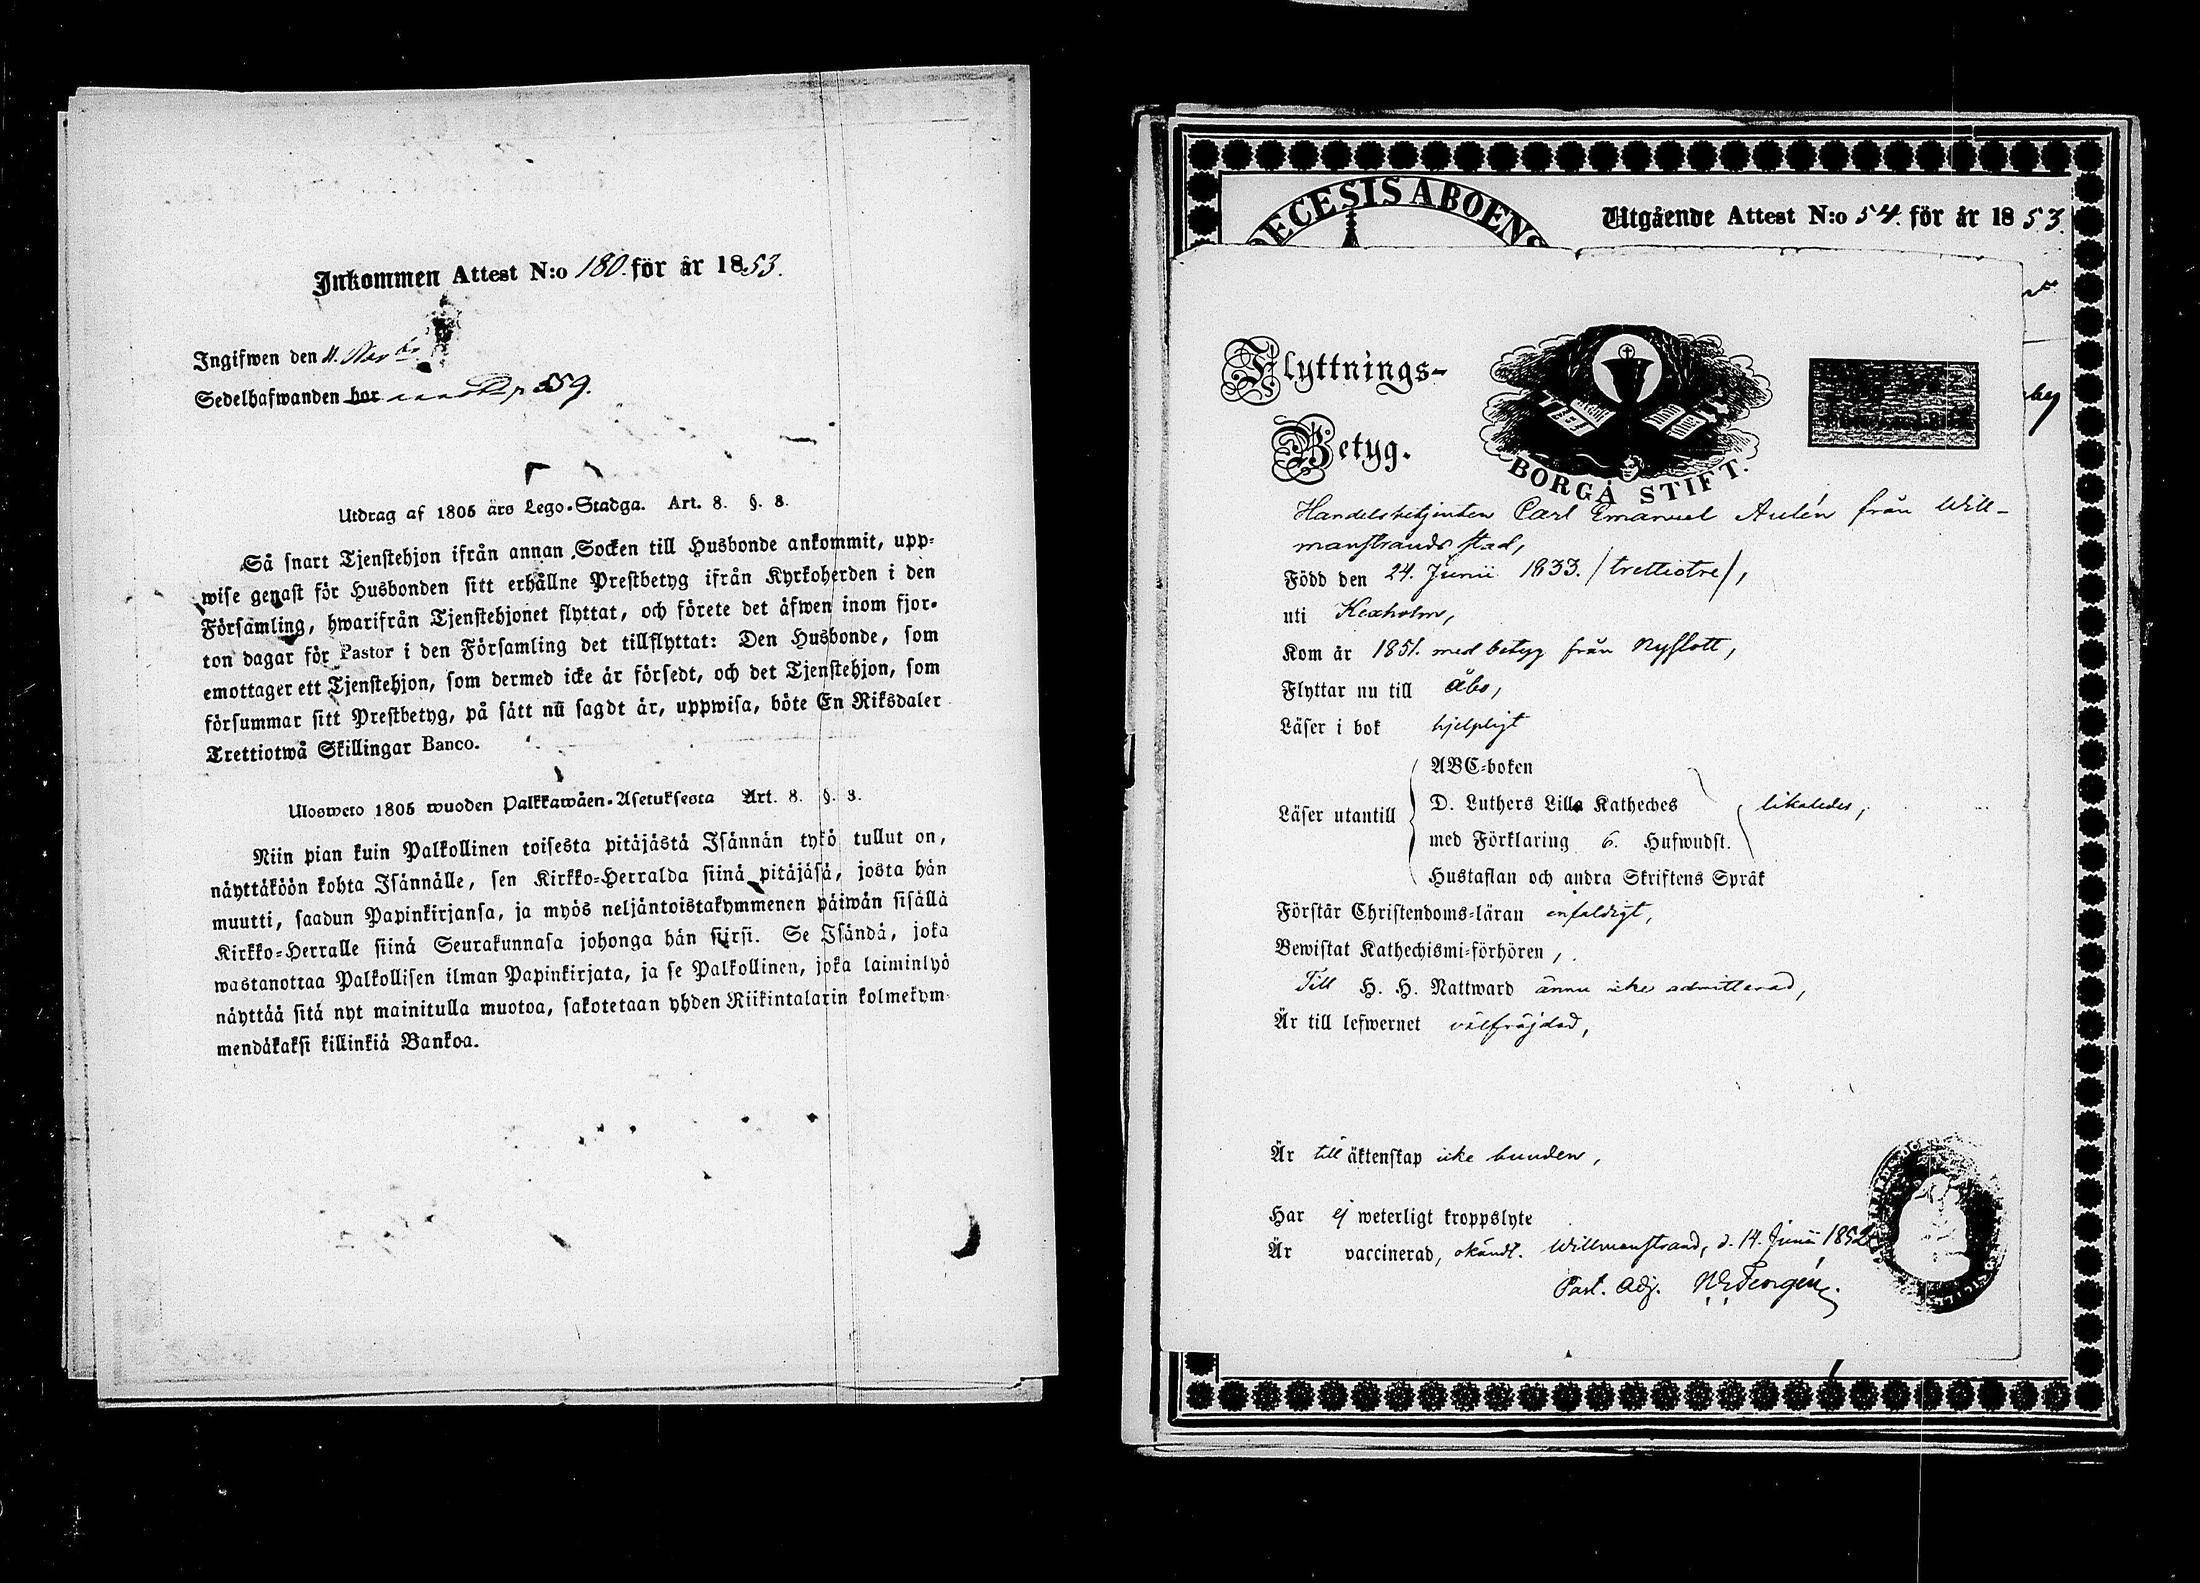 Inkommen Attest N:o 180. för år 1853.
Ingifwen den 11.
Sedelhafwanden bor 559.
Utdrag af 1805 års Lego-Stadga. Art. 8. §. 8.
Så snart Tjenstehjon ifrån annan Socken till Husbonde ankommit, upp-
wise genast för Husbonden sitt erhållne Prestbetyg ifrån Kyrkoherden i den
Församling, hwarifrån Tjenstehjonet flyttat, och förete det äfwen inom fjor-
ton dagar för Pastor i den Församling det tillflyttat: Den Husbonde, som
emottager ett Tjenstehjon, som dermed icke är försedt, och det Tjenstehjon, som
försummar sitt Prestbetyg, på sätt nu sagdt är, uppwisa, böte En Riksdaler
Trettiotwå Skillingar Banco.
Ulosweto 1805 wuoden Palkkawäen-Asetuksesta Art. 8. §. 8.
Niin pian kuin Palkollinen toisesta pitäjästä Isännän tykö tullut on,
näyttäköön kohta Isännälle, sen Kirkko-Herralda siinä pitäjäsä, josta hän
muutti, saadun Papinkirjansa, ja myös neljäntoistakymmenen päiwän sisällä
Kirkko-Herralle siinä Seurakunnasa johonga hän siirsi. Se Isändä, joka
wastanottaa Palkollisen ilman Papinkirjata, ja se Palkollinen, joka laiminlyö
näyttää sitä nyt mainitulla muotoa, sakotetaan yhden Riikintalarin kolmekym-
mendäkaksi killinkiä Bankoa.
DECESIS ABOENS
Utgående Attest N:o 54. för år 1853.
Flyttnings-
Betyg.
BORGÅ STIFT.
Handelsbetjenten Carl Emanuel Aulén från Will-
manstrands stad,
Född den 24. Junii 1833. /trettiotre/,
uti Kexholm,
Kom år 1851. med betyg från Nyslott,
Flyttar nu till Åbo,
Läser i bok hjelpligt
Läser utantill
ABC-boken
D. Luthers Lilla Katheches
med Förklaring 6. Hufwudst.
Hustaflan och andra Skriftens Språk
likaledes,
Förstår Christendoms-läran enfaldigt,
Bewistat Kathechismi-förhören,
Till H. H. Nattward ännu icke admitterad,
Är till lefwernet välfräjdad,
Är till äktenskap icke bunden,
Har ej weterligt kroppslyte
Är vaccinerad, okändt. Willmanstrand, d. 14. Junii 1852
Past. Adj.